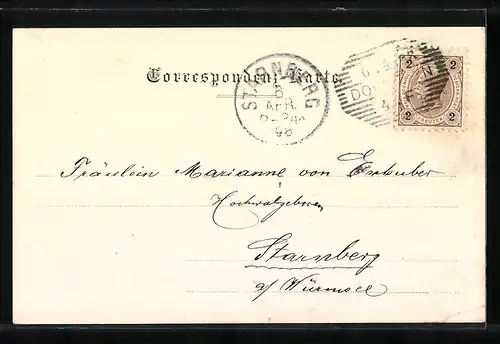 Correspondenz-Karte
STARNBERG
6
APR.
98
2 2
2 2
Fräulein Marianne von
Hochwolgeboren
Starnberg
a/ Würmsee